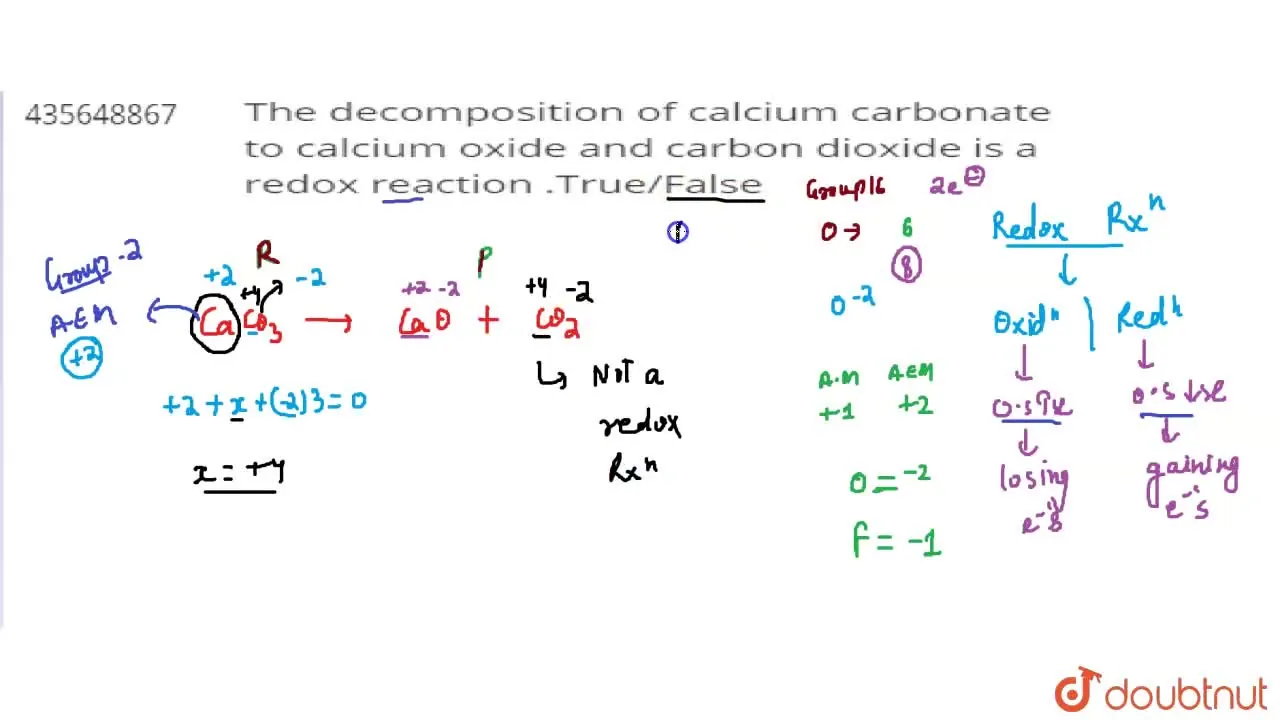 435648867 The decomposition of calcium carbonate
to calcium oxide and carbon dioxide is a
redox reaction .True/False
Group 16 2e⊖
O → 6
8
O-2
Redox Rxn
Group-2
A·E·M
+2
R P
+2 +4 -2 +2 -2 +4 -2
CaCO3 → CaO + CO2
+2 + x + (-2)3 = 0
x = +4
Not a
redox
Rxn
A·M A·E·M
+1 +2
O = -2
F = -1
Oxidn | Redn
O·S↑se O·S↓se
losing gaining
e-'s e-'s
doubtnut